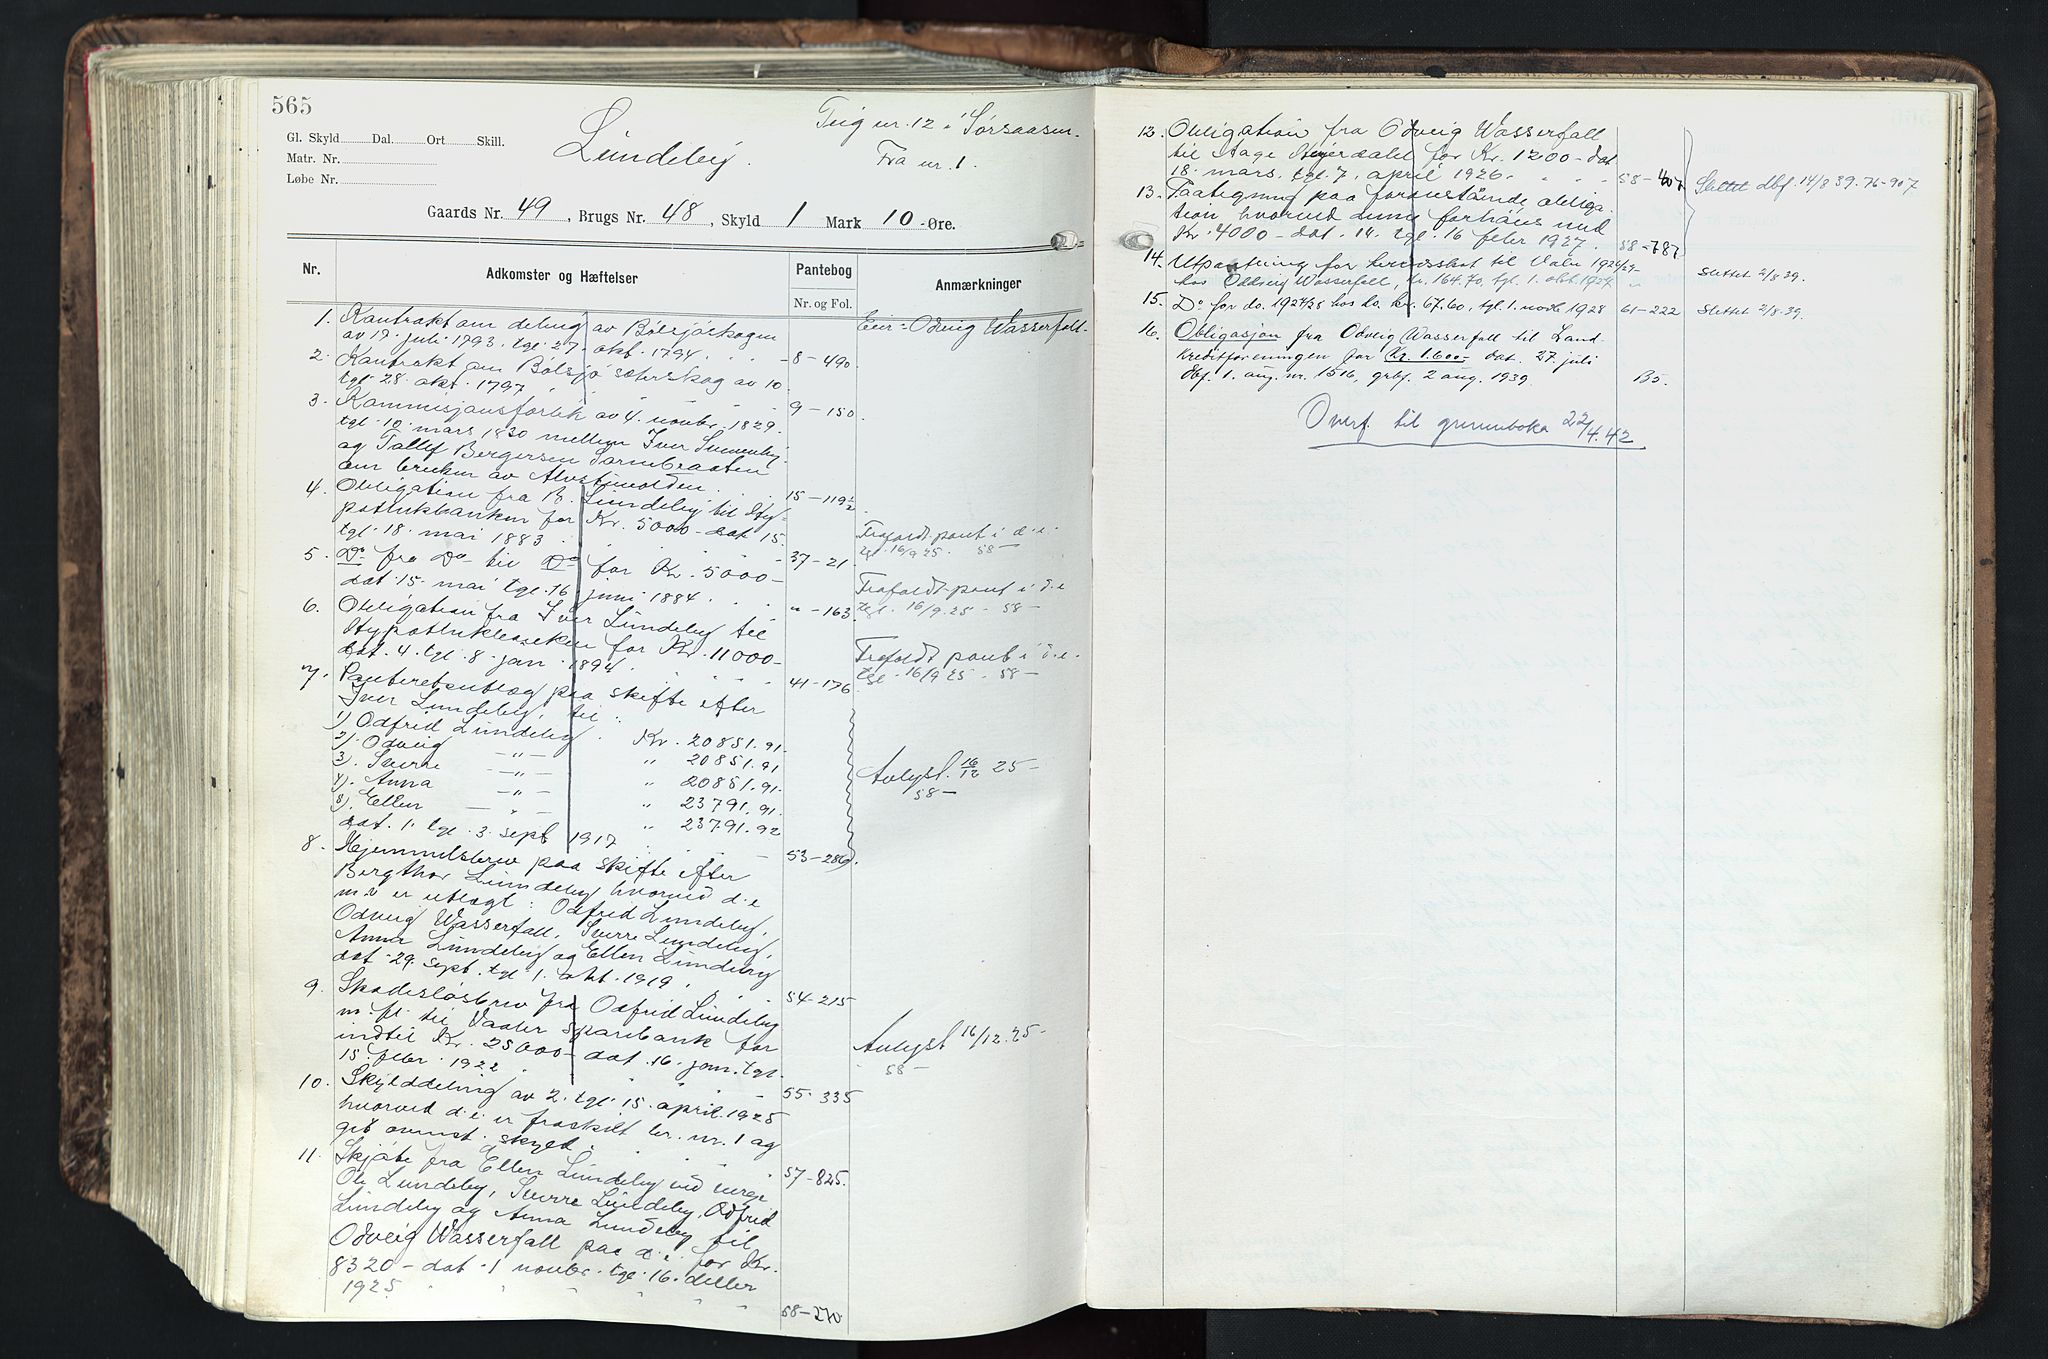 565
Gl. Skyld Dal. Ort Skill.
Matr. Nr.
Løbe Nr.
Lundeby.
Teig nr. 12 i Sørsaasen.
Fra nr. 1.
Gaards Nr. 49, Brugs Nr. 48, Skyld 1 Mark 10 Øre.
Nr. Adkomster og Hæftelser Pantebog Anmærkninger
Nr. og Fol.
1. Kontrakt om deling av Bølsjøskogen
av 17. juli 1793. tgl. 27. okt. 1794. 8-490 Eier: Odveig Wasserfall.
2. Kontrakt om Bølsjø sæterskog av 10.
tgl. 28. okt. 1797 9-150
3. Kommisjonsforlik av 4. novbr. 1829.
tgl. 10. mars 1830 mellem Iver
og Bergersen
om bruken av 15-119½
4. Obligation fra B. Lundeby til Hy-
potekbanken for Kr. 5000- dat 15.
tgl. 18. mai 1883 37-21
Frafaldt pant i d.e.
tgl. 16/9 25. 58-
5. Do fra Do til Do for Kr. 5000-
dat. 15. mai tgl. 16 juni 1884. "-163
Frafaldt pant i d.e
tgl. 16/9.25 - 58-
6. Obligation fra Iver Lundeby til
Hypotekbanken for Kr. 11000-
dat. 4. tgl. 8. jan. 1894. 41-176
Frafaldt pant i d.e.
tgl. 16/9 25. 58-
7. Panteretsutlæg paa skifte efter
Iver Lundeby, til:
1) Odfrid Lundeby. Kr. 20851.91.
2). Odveig -"- " 20851.91
3). Sverre -"- " 20851.91.
4). Anna -"- " 23791.91.
5). Ellen -"- " 23791.92
dat. 1. tgl. 3. sept 1917 53-289
Avlyst. 16/12 25-
58-
8. Hjemmelsbrev paa skifte efter
Bergthor Lundeby hvorved d.e
m.v er utlagt: Odfrid Lundeby,
Odveig Wasserfall, Sverre Lundeby,
Anna Lundeby og Ellen Lundeby
dat. 29. sept. tgl. 1. okt. 1919. 54-215
9. Skadesløsbrev fra Odfrid Lundeby
m.fl. til Vaaler sparebank for
indtil Kr. 25000- dat. 16. jan. tgl.
15. febr. 1922. 55-335
Avlyst 16/12.25-
58-
10. Skylddeling av 2. tgl. 15. april. 1925
hvorved d.e. er fraskilt br. nr. 1 og
git ovennt. skyld. 57-825.
11. Skjøte fra Ellen Lundeby ved verge
Ole Lundeby, Sverre Lundeby, Odfrid
Lundeby og Anna Lundeby til
Odveig Wasserfall paa d.e. for Kr.
8320- dat. 1 novbr. tgl. 16. december
1925 58-270
12. Obligation fra Odveig Wasserfall
til Aage Heyerdahl for Kr. 1200- dat
18. mars. tgl. 7. april 1926. 58-407
Slettet dbf. 14/8 39. 76-907
13. Paategning paa foranstående obliga-
tion hvorved denne forhøies med
Kr. 4000- dat. 14. tgl. 16 febr 1927. 58-787
14. Utpantning for herredsskat til Våler 1926/27-
hos Oddveig Wasserfall, kr. 164.70, tgl. 1. okt. 1927. "
Slettet 2/8 39.
15. Do for do. 1927/28 hos do. kr. 67.60, tgl. 1. novb 1928 61-222 Slettet 2/8.39.
16. Obligasjon fra Odveig Wasserfall til Land-
kreditforeningen for Kr. 1.600- dat. 27. juli
dbf. 1. aug. nr. 1516, grbf. 2 aug. 1939. B5.
Overf. til grunnboka 22/4.42